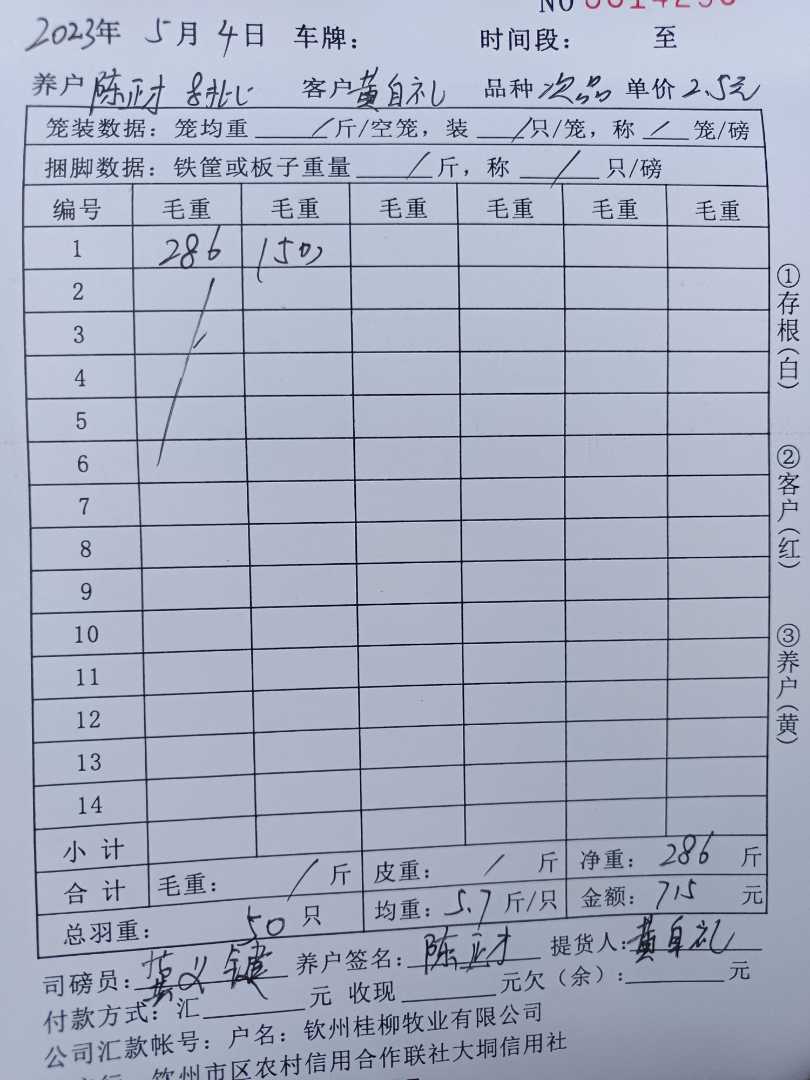 NO 0014296
2023年 5月 4日 车牌： 时间段： 至
养户 陈正才 客户 黄自礼 品种 次品 单价 2.5元
笼装数据：笼均重 / 斤/空笼，装 / 只/笼，称 / 笼/磅
捆脚数据：铁筐或板子重量 / 斤，称 / 只/磅
编号 毛重 毛重 毛重 毛重 毛重 毛重
1 286
2
3
4
5
6
7
8
9
10
11
12
13
14
小计
合计 毛重： / 斤 皮重： / 斤 净重： 286 斤
总羽重： 50 只 均重： 5.7 斤/只 金额： 715 元
司磅员： 养户签名： 陈正才 提货人： 黄自礼
付款方式：汇 元 收现 元欠（余）： 元
公司汇款帐号：户名：钦州桂柳牧业有限公司
钦州市区农村信用合作联社大垌信用社
①存根（白）
②客户（红）
③养户（黄）